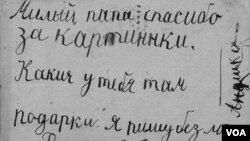 Милый папа спасибо
за картиннки.
Какие у тебя там
подарки. Я пишу без ла
Андрюша
VOA